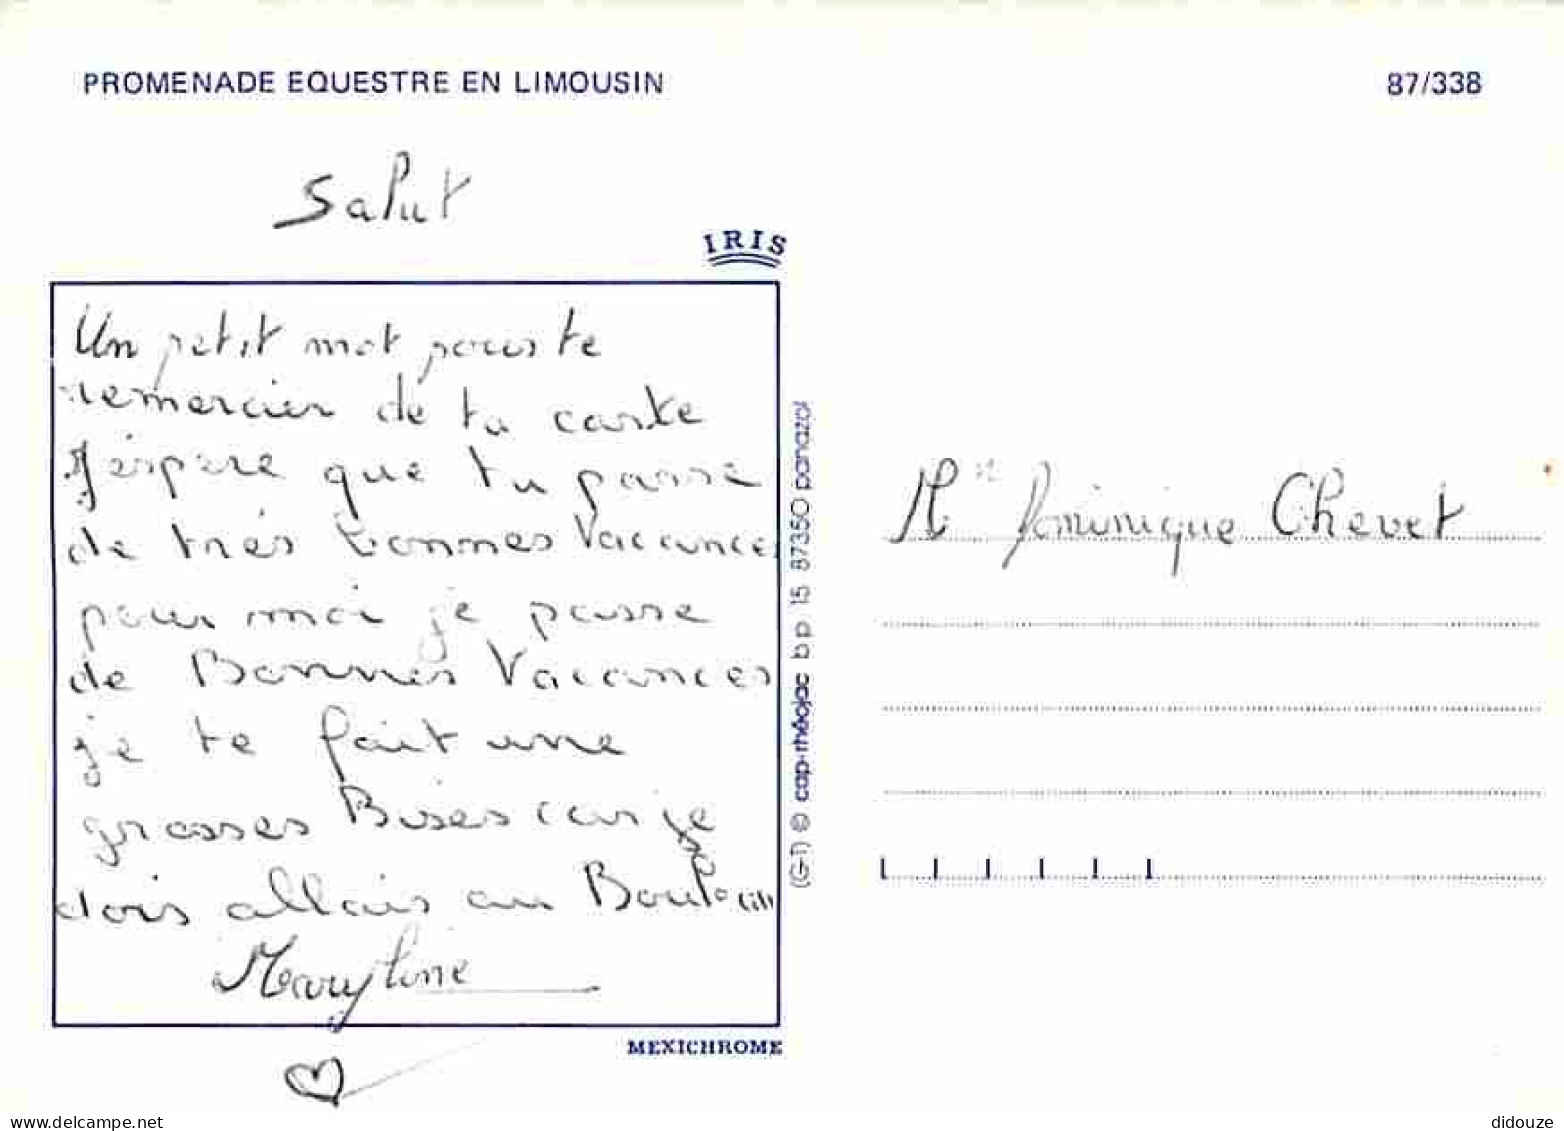 PROMENADE EQUESTRE EN LIMOUSIN
87/338
Salut
IRIS
Un petit mot pour te
remercier de ta carte
J'éspere que tu passe
de très bonnes Vacances
pour moi je passe
de Bonnes Vacances
je te fait une
grosses Bises car je
dois allais au Boulo
Maryline
MEXICHROME
(G-1) © cap-théojac bp 15 87350 panazol
M Dominique Chevet
delcampe.net
didouze